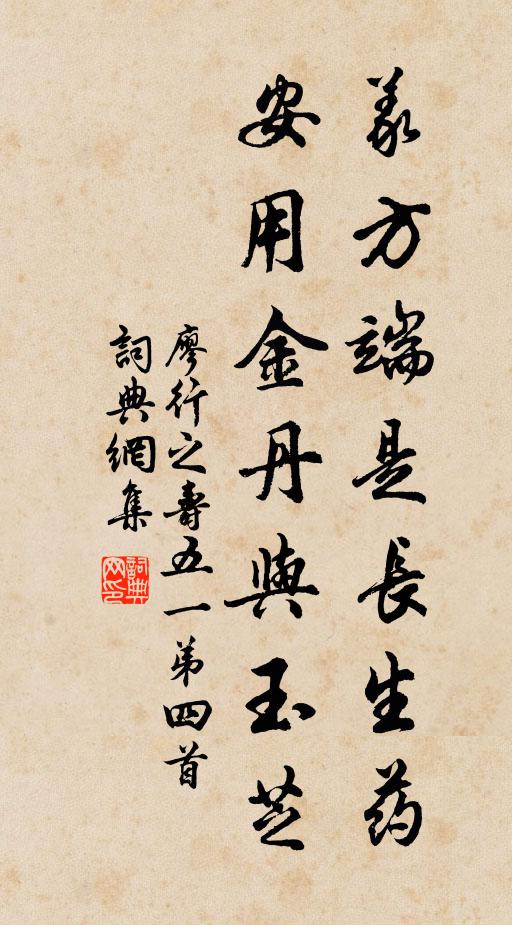 義方端是長生药
安用金丹與玉芝
廖行之壽五一第四首
詞典網集
詞典网印